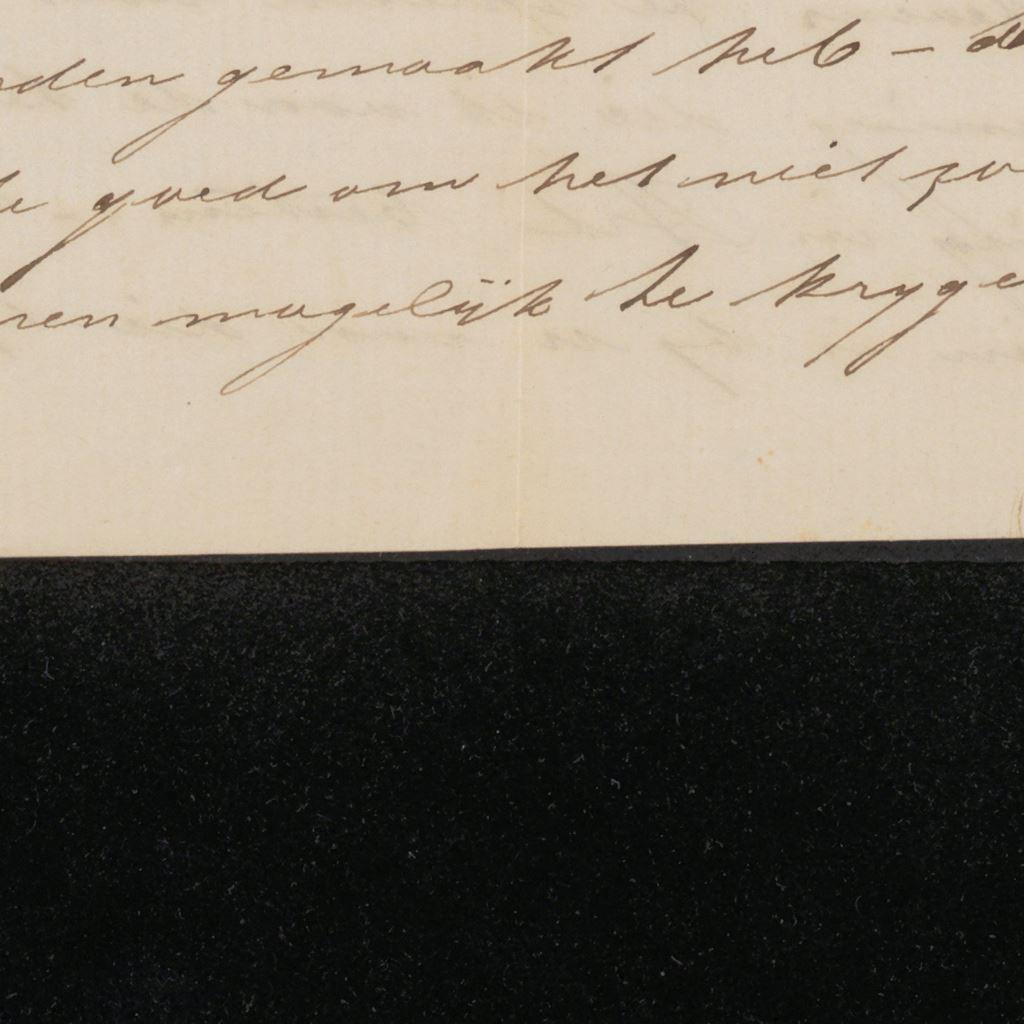 den gemaakt heb – de
te goed om het niet zo
ren mogelijk te krijge